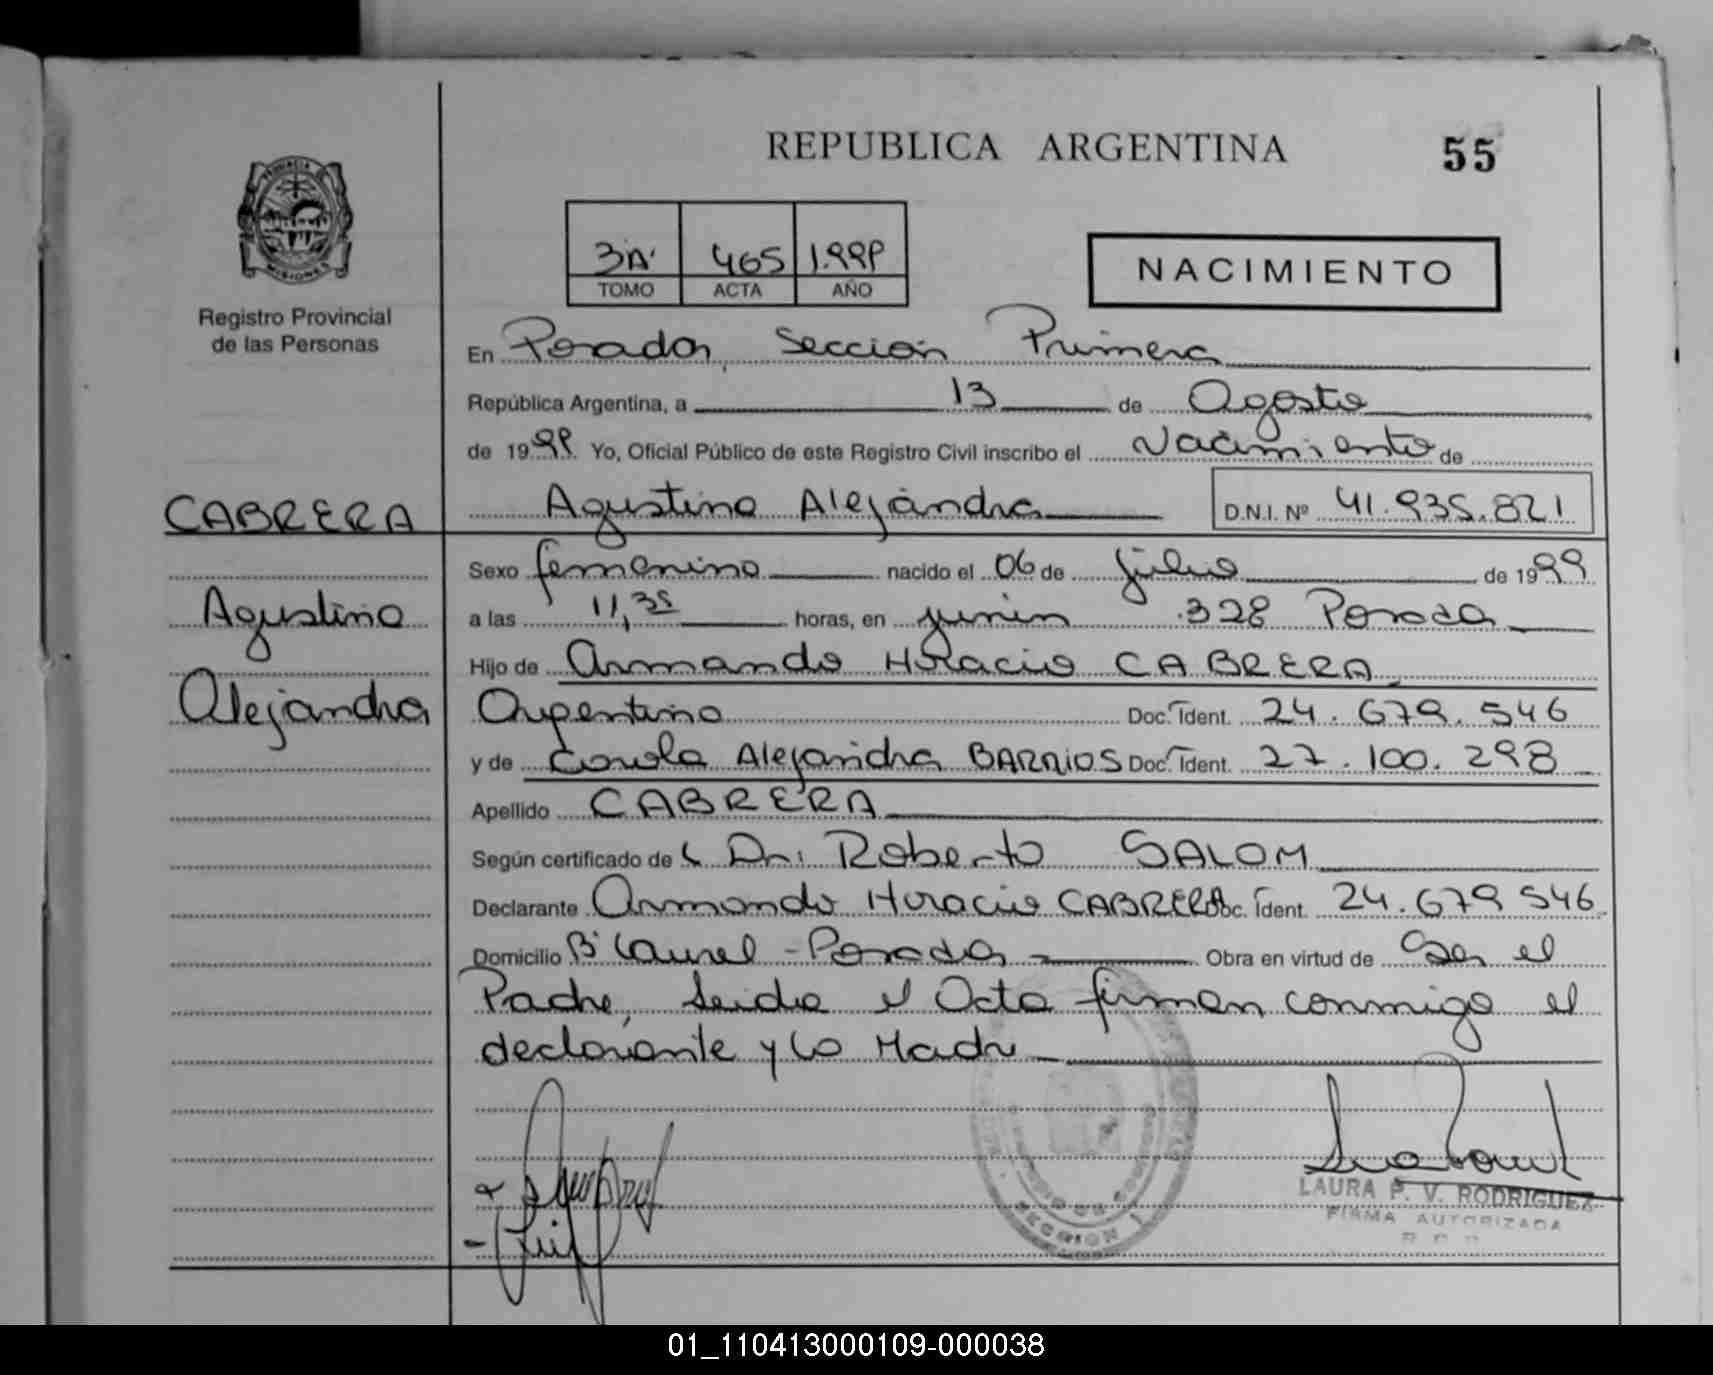 REPUBLICA ARGENTINA
55
PROVINCIA DE
MISIONES
Registro Provincial
de las Personas
3"A" 465 1.999
TOMO ACTA AÑO
NACIMIENTO
En Posadas, Sección Primera
República Argentina, a 13 de Agosto
de 1999. Yo, Oficial Público de este Registro Civil inscribo el Nacimiento de
CABRERA
Agustina Alejandra
D.N.I. Nº 41.935.821
Sexo femenino nacido el 06 de julio de 1999
Agustina
a las 11,35 horas, en junin 328 Posadas
Hijo de Armando Horacio CABRERA
Alejandra
Argentino Doc. Ident. 24.679.546
y de Alejandra BARRIOS Doc. Ident. 27.100.298
Apellido CABRERA
Según certificado de Dr. Roberto SALOM
Declarante Armando Horacio CABRERA Doc. Ident. 24.679 546
Domicilio Bº Laurel - Posadas Obra en virtud de Ser el
Padre, Leida el Acta firman conmigo el
declarante y la Madre
SECCION 1
LAURA P. V. RODRIGUEZ
FIRMA AUTORIZADA
01_110413000109-000038